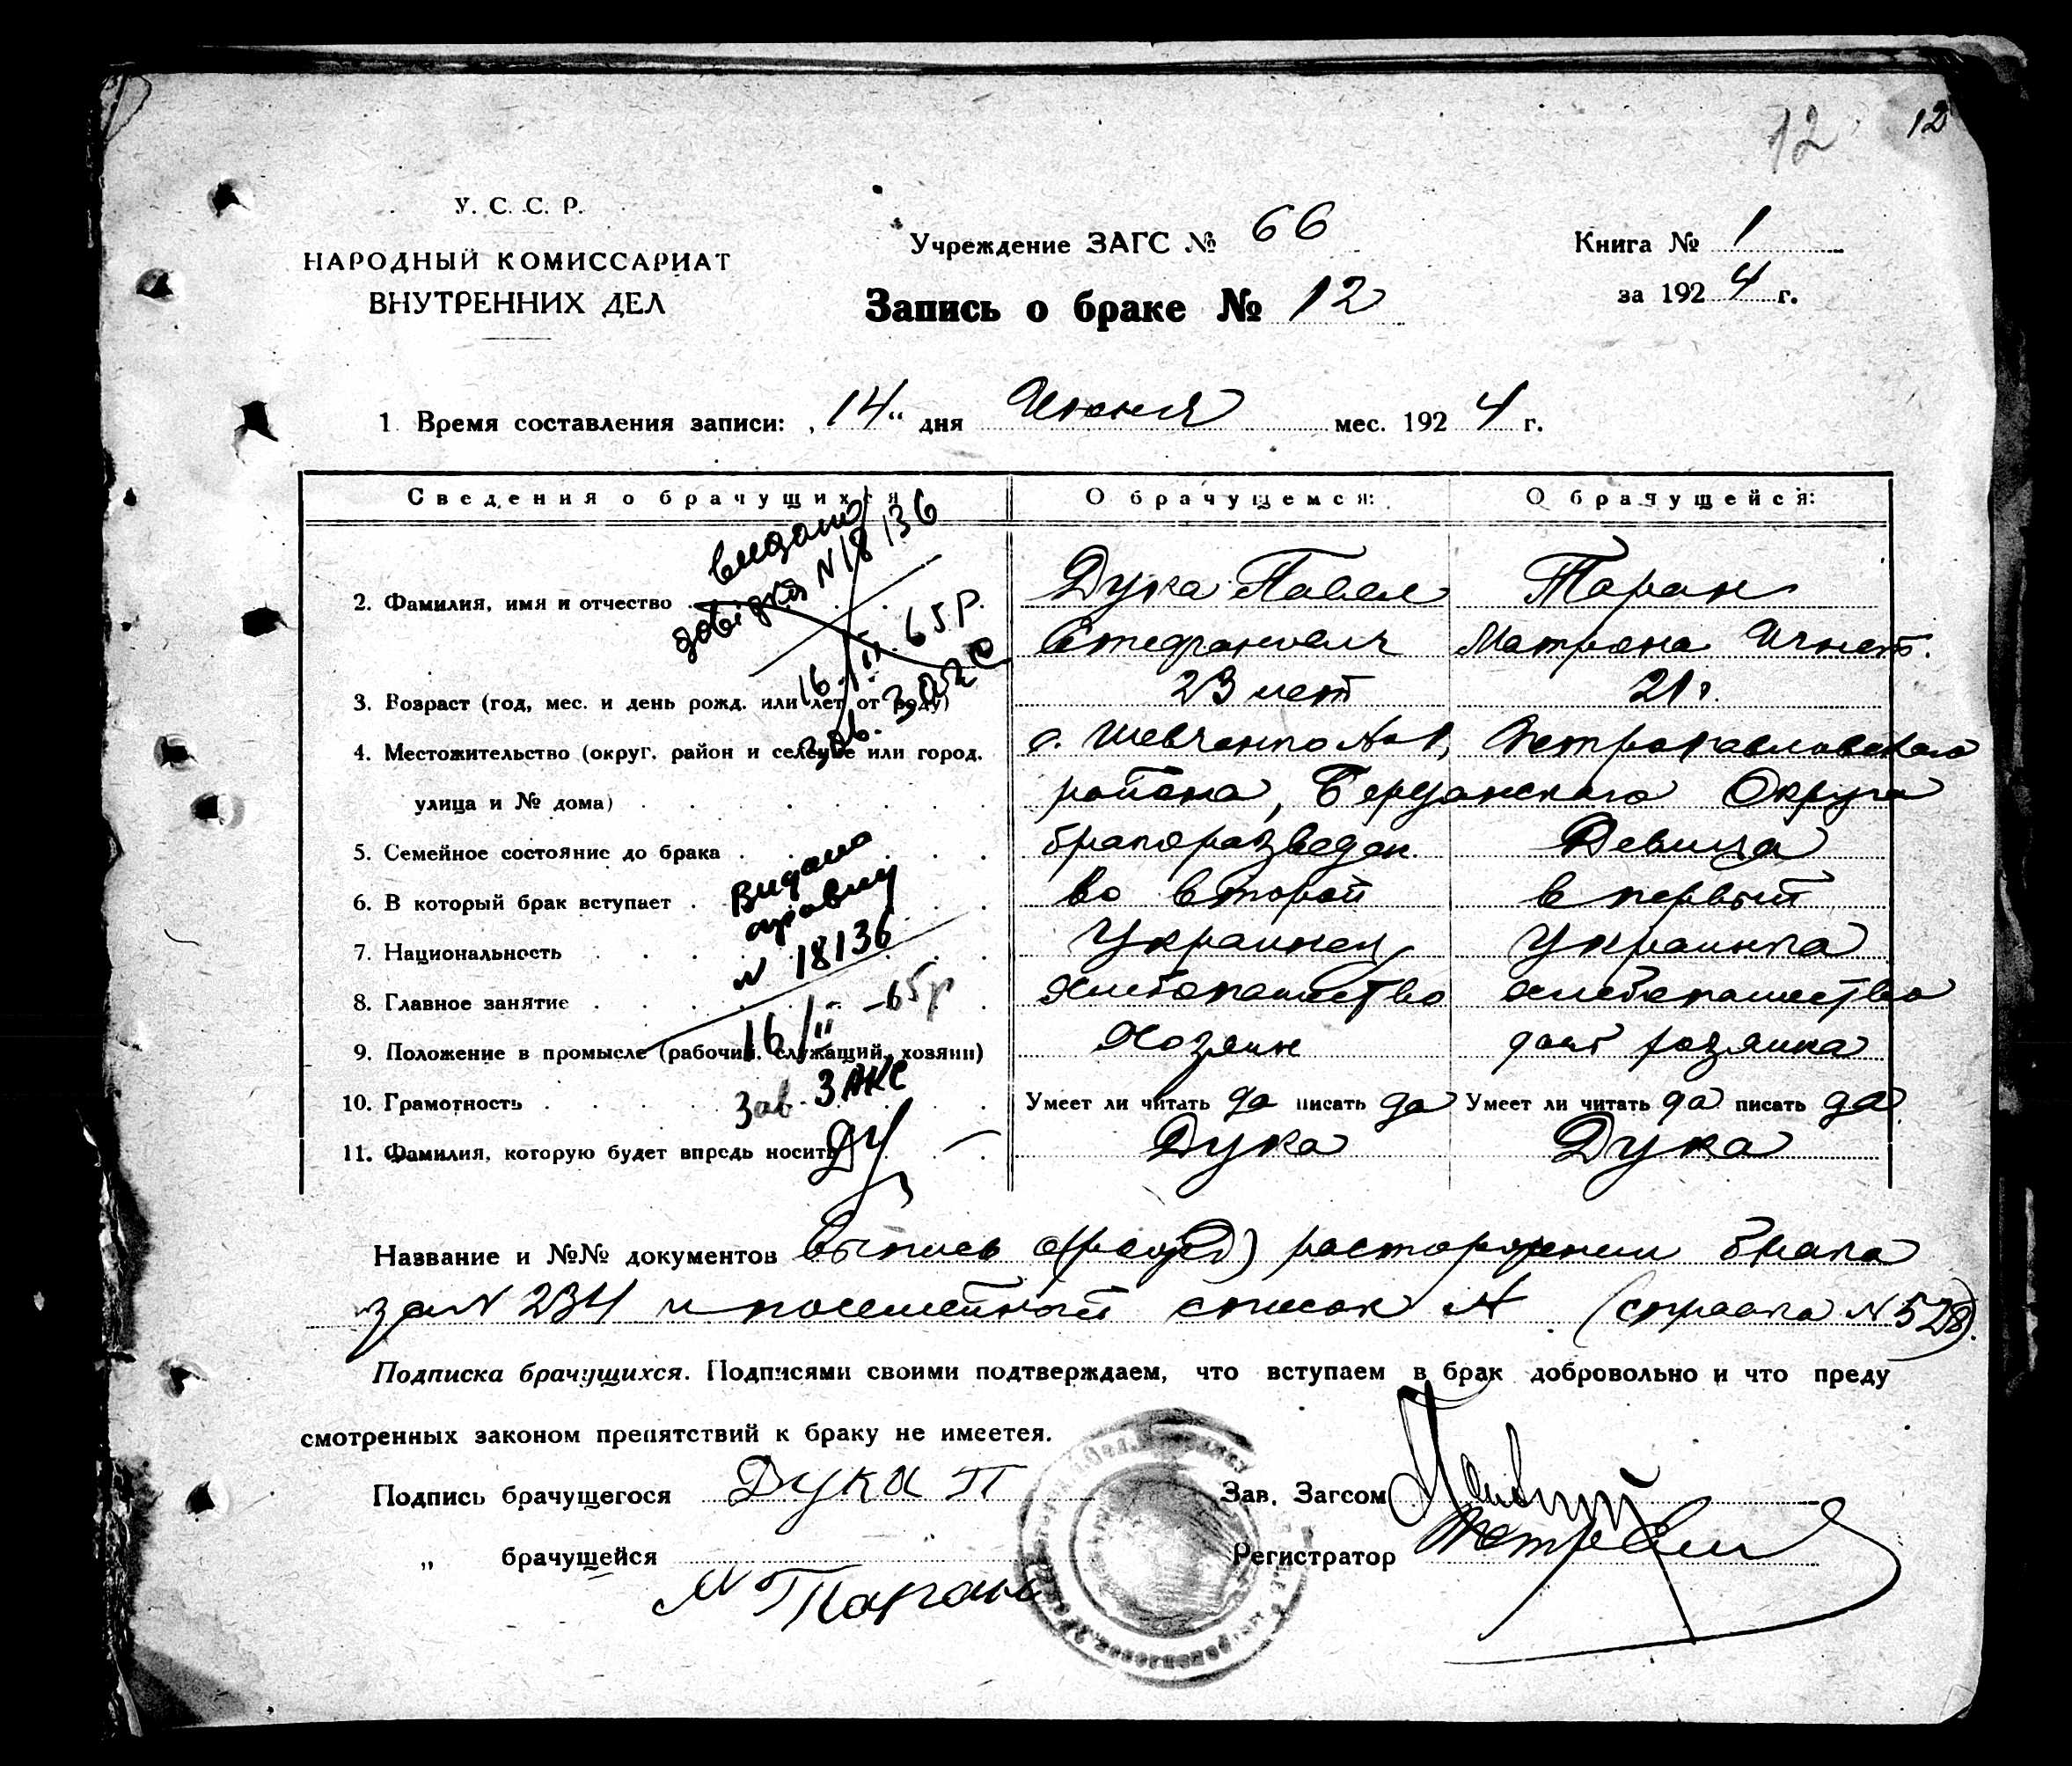 12 12
У. С. С. Р.
НАРОДНЫЙ КОМИССАРИАТ
ВНУТРЕННИХ ДЕЛ
Учреждение ЗАГС № 66
Запись о браке № 12
Книга № 1
за 1924 г.
1 Время составления записи: „14“ дня Июня мес. 1924 г.
Сведения о брачущихся О брачущемся: О брачущейся:
видано
довідка N 18136
16/II. 65 р.
Зав.
2. Фамилия, имя и отчество Дука Павел Таран
Стефанович Матрона Игнат.
3. Возраст (год, мес. и день рожд. или лет от роду) 23 лет 21 г.
4. Местожительство (округ, район и селение или город, с. Шевченко №1, Петропавловского
улица и № дома) района, Бердянского Округа
5. Семейное состояние до брака бракоразведен. Девица
6. В который брак вступает во второй в первый
7. Национальность Украинец Украинка
8. Главное занятие хлебопашество хлебопашество
9. Положение в промысле (рабочий, служащий, хозяин) Хозяин дом хозяйка
10. Грамотность Умеет ли читать да писать да Умеет ли читать да писать да
11. Фамилия, которую будет впредь носить Дука Дука
Видано
справку
N 18136
16/II – 65 р
Зав. ЗАКС
Название и №№ документов Выпись о расторжении брака
за N 234 и посемейный список А (справка N 528).
Подписка брачущихся. Подписями своими подтверждаем, что вступаем в брак добровольно и что преду
смотренных законом препятствий к браку не имеется.
Подпись брачущегося Дука П
Зав. Загсом
„ брачущейся М Таран
Регистратор